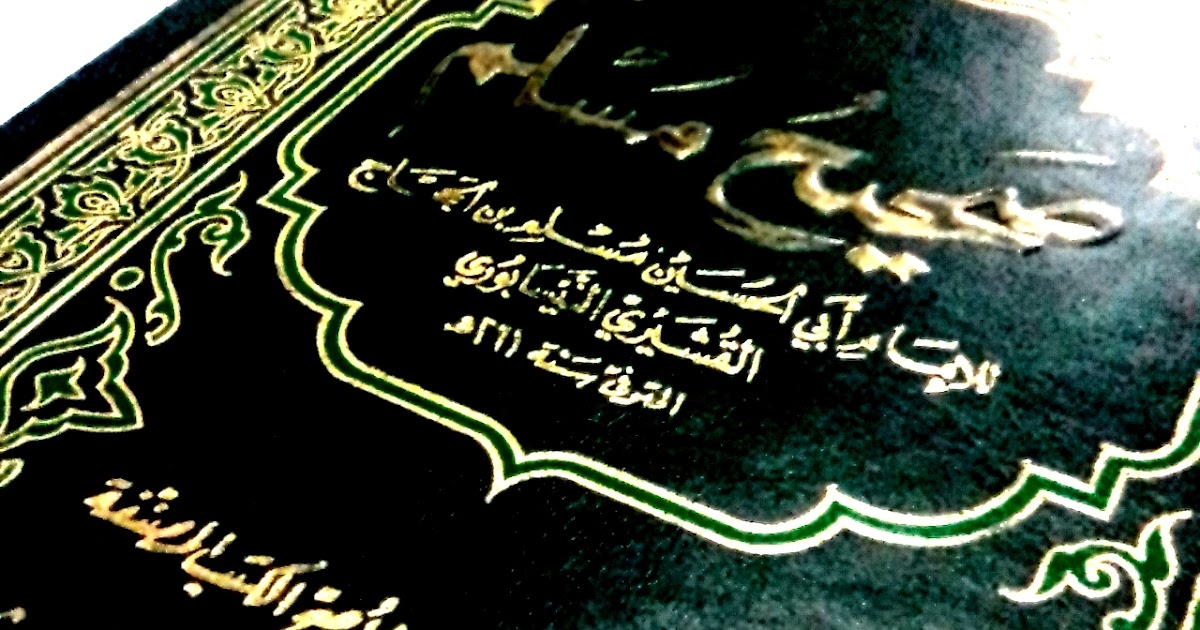 صَحِيحُ مُسْلِم
للإمام أبي الحُسَين مُسْلم بن الحَجّاج
القُشَيْرِيّ النَّيْسَابُوري
المتوفى سَنة ٢٦١هـ
الكتب المصنفة